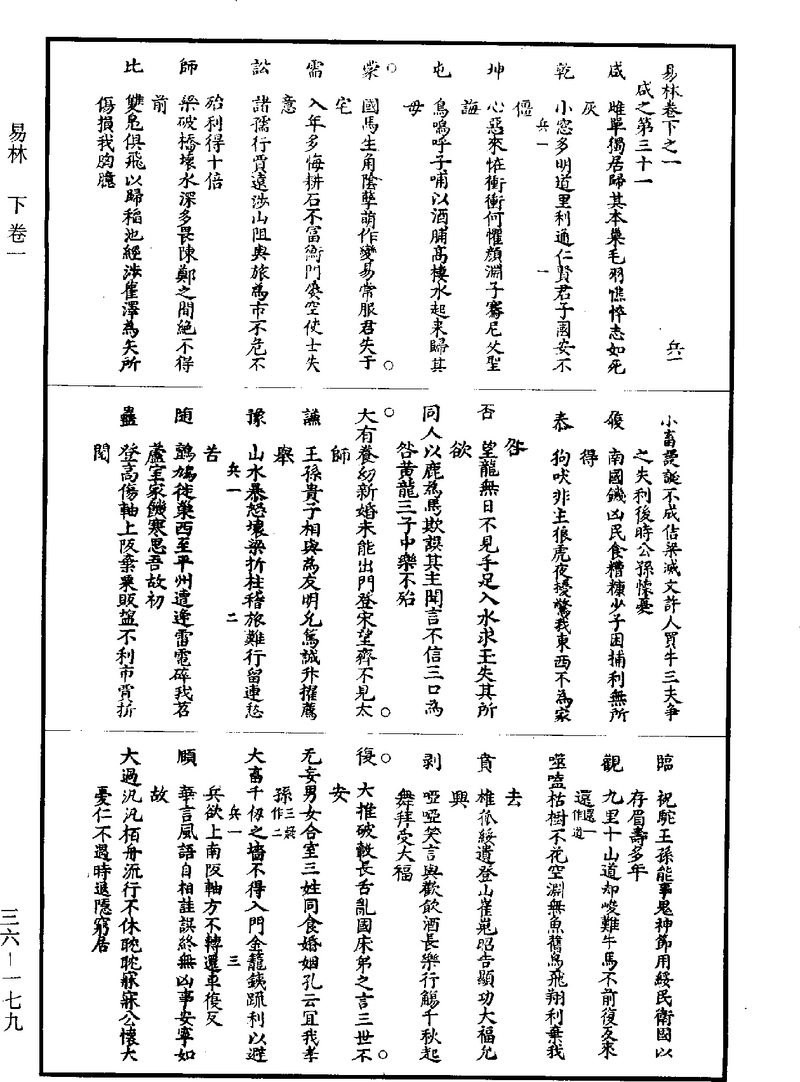 易林卷下之一
咸之第三十一
兵一
咸 雌單獨居歸其本巢毛羽憔悴志如死
灰
乾 小窓多明道里利通仁賢君子國安不
僵
兵一 一
坤 心惡來怪衝衝何懼顔淵子騫尼父聖
誨
屯 鳥鳴呼子哺以酒脯高棲水起來歸其
母
蒙 國馬生角陰孽萌作變易常服君失于
宅
需 入年多悔耕石不富衡門屢空使士失
意
訟 諸孺行賈遠涉山阻與旅為市不危不
殆利得十倍
師 梁破橋壞水深多畏陳鄭之間絶不得
前
比 雙鳧俱飛以歸稻池經涉雈澤為矢所
傷損我胸臆
小畜謾誕不成倍梁滅文許人買牛三夫爭
之失利後時公孫懷憂
履 南國饑凶民食糟糠少子困捕利無所
得
泰 狗吠非主狼虎夜擾驚我東西不為家
咎
否 望龍無目不見手足入水求玉失其所
欲
同人以鹿為馬欺誤其主聞言不信三口為
咎黄龍三子中樂不殆
大有養幼新婚未能出門登宋望齊不見太
師
謙 王孫貴子相與為友明允篤誠升擢薦
舉
豫 山水暴怒壞梁折柱稽旅難行留連愁
苦
兵一 二
随 鸇鳩徙巢西至平州遭逢雷電碎我苕
蘆室家饑寒思吾故初
蠱 登高傷軸上阪棄粟販塩不利市賈折
閲
臨 祝駝王孫能事鬼神節用綏民衛國以
存眉壽多年
觀 九里十山道却峻難牛馬不前復反來
還 還一作道
噬嗑枯樹不花空淵無魚舊鳥飛翔利棄我
去
賁 雄狐綏遺登山崔嵬昭告顯功大福允
興
剥 啞啞笑言與歡飲酒長樂行觴千秋起
舞拜受大福
復 大推破轂長舌亂國床第之言三世不
安
无妄男女合室三姓同食婚姻孔云宜我孝
孫 三姓作二
大畜千仭之墻不得入門金籠銕疏利以避
兵欲上南阪軸方不轉還車復反
兵一 三
頤 華言風語自相詿誤終無凶事安寧如
故
大過汎汎栢舟流行不休耿耿寐寐公懷大
憂仁不遇時退隱窮居
易林 下卷一
三六—一七九